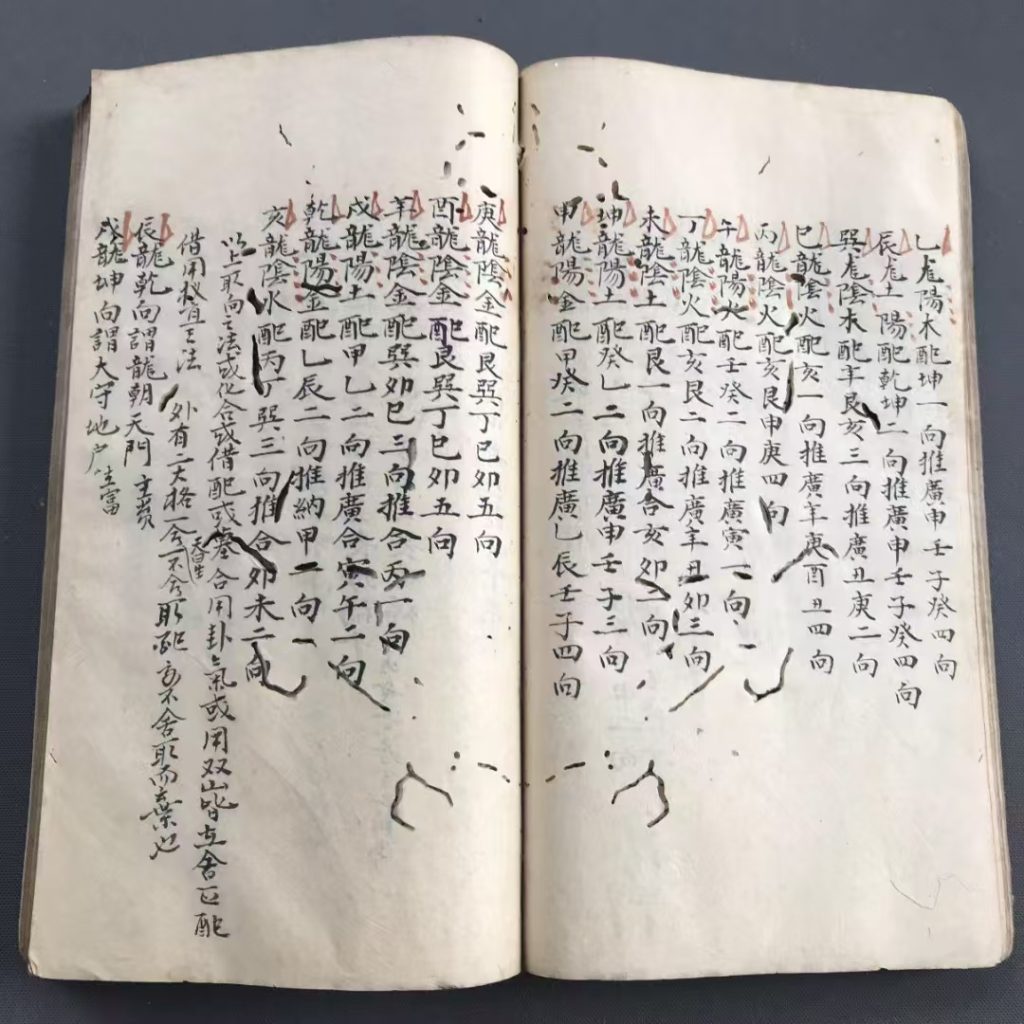 乙龍陽木配坤一向推廣申壬子癸四向
辰龍土陽配乾坤二向推廣申壬子癸四向
巽龍陰木配辛艮亥三向推廣丑庚二向
巳龍陰火配亥一向推廣辛庚酉丑四向
丙龍陰火配亥艮申庚四向
午龍陽火配壬癸二向推廣寅一向
丁龍陰火配亥艮二向推廣辛丑卯三向
未龍陰土配艮一向推廣合亥卯二向
坤龍陽土配癸乙二向推廣申壬子三向
甲龍陽金配甲癸二向推廣乙辰壬子四向
庚龍陰金配艮巽丁巳卯五向
酉龍陰金配艮巽丁巳卯五向
辛龍陰金配巽卯巳三向推合丙一向
戌龍陽土配甲乙二向推廣合寅午二向
乾龍陽金配乙辰二向推納甲一向
亥龍陰火配丙丁巽三向推合卯未二向
以上取向之法或化合或借配或塟合用卦氣或用双山皆互舍匹配
借用权宜之法 外有二大格一会不合取配方不舍取而棄也
辰龍乾向謂龍朝天門
戌龍坤向謂大守地户生富